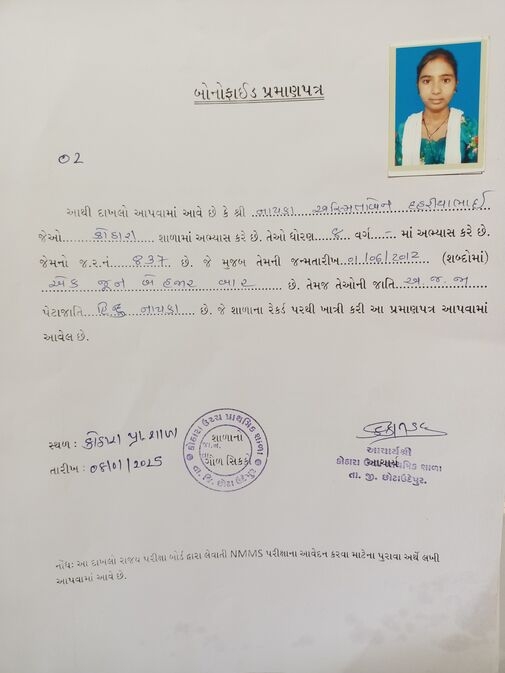 બોનોફાઈડ પ્રમાણપત્ર
02
આથી દાખલો આપવામાં આવે છે કે શ્રી નાયકા અસ્મિતાબેન
જેઓ કોઠારા શાળામાં અભ્યાસ કરે છે. તેઓ ધોરણ ૮ વર્ગ - માં અભ્યાસ કરે છે.
જેમનો જ.ર.નં. ૪૩૭ છે. જે મુજબ તેમની જન્મતારીખ 01/06/2012 (શબ્દોમાં)
એક જૂન બે હજાર બાર છે. તેમજ તેઓની જાતિ અ.જ.જા
પેટાજાતિ હિન્દુ નાયકા છે. જે શાળાના રેકર્ડ પરથી ખાત્રી કરી આ પ્રમાણપત્ર આપવામાં
આવેલ છે.
સ્થળ : કોઠારા પ્રા. શાળા
તારીખ : 08/01/2025
કોઠારા ઉચ્ચ પ્રાથમિક શાળા
શાળાનો
ગોળ સિક્કો
તા. જિ. છોટાઉદેપુર
આચાર્યશ્રી
કોઠારા પ્રાથમિક શાળા
તા. જી. છોટાઉદેપુર.
નોંધઃ આ દાખલો રાજ્ય પરીક્ષા બોર્ડ દ્વારા લેવાતી NMMS પરીક્ષાના આવેદન કરવા માટેના પુરાવા અર્થે લખી
આપવામાં આવે છે.